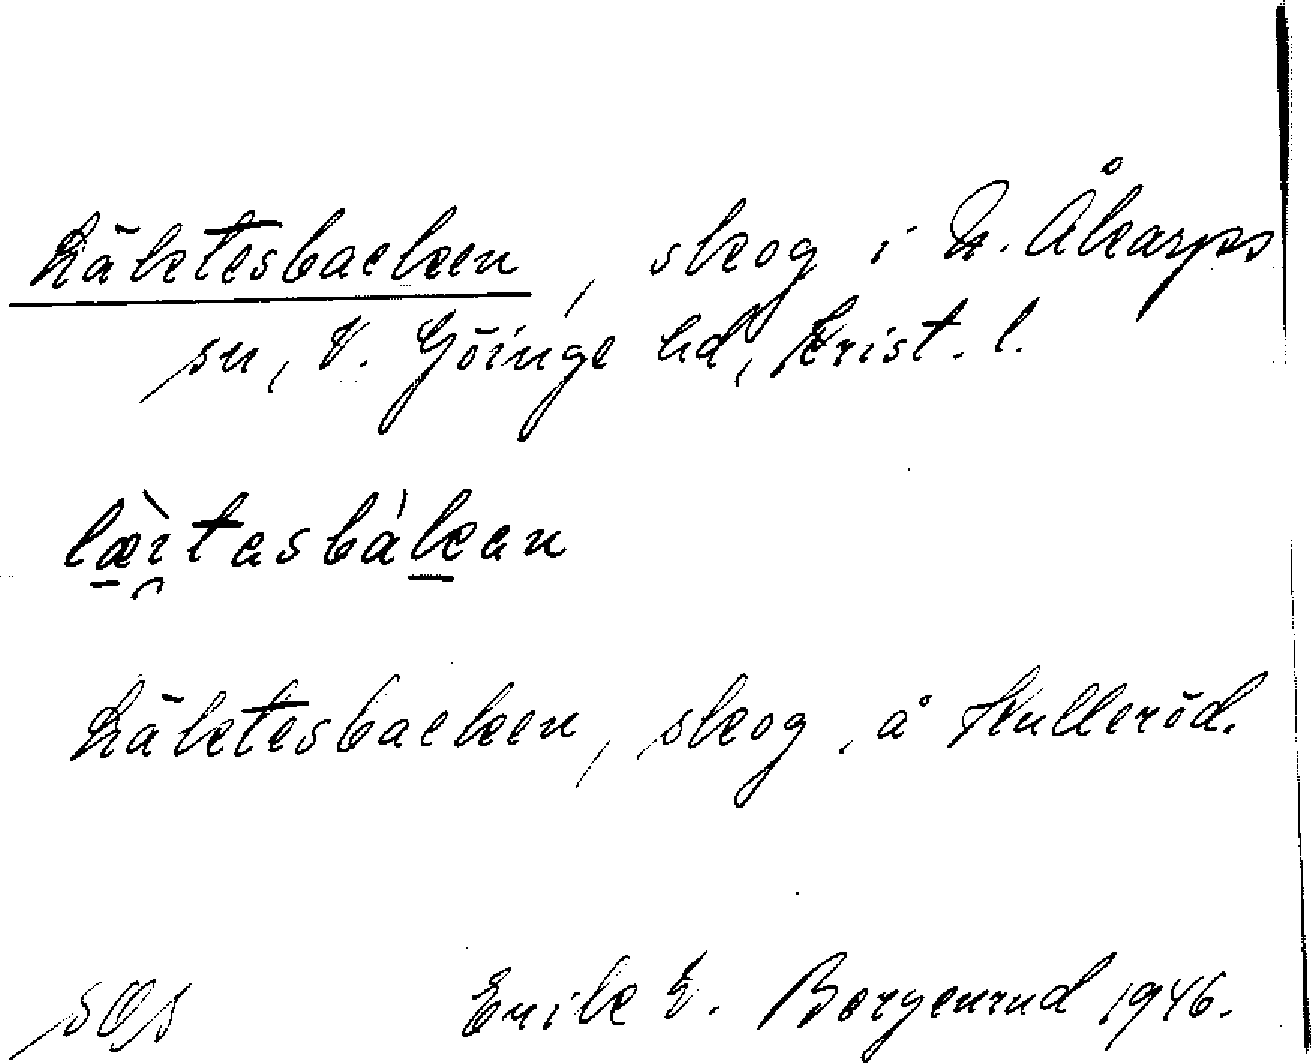 Läktesbacken, skog i N. Åkarps
sn, V. Göinge hd, Krist. l.
læ̀i̯tasbákan
Läktesbacken, skog, å Hulleröd.
Erik E. Borgenrud 1946.